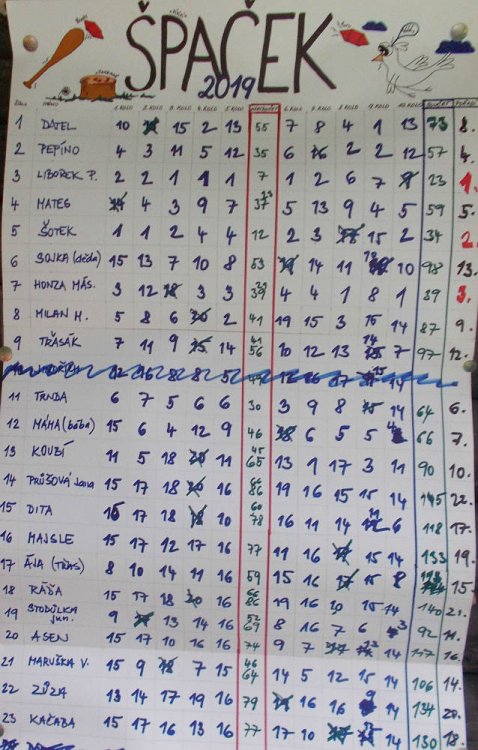 ŠPAČEK
2019
ČÍSLO JMÉNO 1. KOLO 2. KOLO 3. KOLO 4. KOLO 5. KOLO 6. KOLO 7. KOLO 8. KOLO 9. KOLO 10. KOLO
1 DATEL 10 15 2 13 55 7 8 4 1 13 73 8.
2 PEPÍNO 4 3 11 5 12 35 6 2 2 12 57 4.
3 LIBOŘEK P. 2 2 1 1 1 7 1 2 6 7 23 1.
4 MATES 4 3 9 7 37 5 13 9 4 5 59 5.
5 ŠOTEK 1 1 2 4 4 12 2 3 15 2 34 2.
6 SOJKA (děda) 15 13 7 10 8 53 14 11 10 98 13.
7 HONZA MÁS. 3 12 3 3 39 4 4 1 8 1 39 3.
8 MILAN H. 5 8 6 2 41 19 15 3 14 87 9.
9 TŘASÁK 7 11 9 14 41 56 10 12 13 7 97 12.
11 TRNDA 6 7 5 6 6 30 3 9 8 14 64 6.
12 MÁHA (bába) 15 6 4 12 9 46 6 5 5 66 7.
13 KOUZÍ 11 5 18 11 45 65 13 1 17 3 11 90 10.
14 PRŮŠOVÁ Jana 15 17 18 16 66 86 19 16 15 15 14 145 22.
15 DITA 17 18 10 60 78 16 11 14 6 118 17.
16 MAJSLE 15 17 12 17 16 77 11 16 15 14 133 19.
17 ÁJA (TŘAS) 8 10 14 11 16 59 15 16 15 8 15.
18 RÁŠA 15 17 18 16 66 86 19 16 15 14 140 21.
19 STODŮLKA jun. 9 13 14 16 52 69 8 16 7 6 3 92 11.
20 ASEN 15 17 10 16 16 74 9 7 14 16.
21 MARUŠKA V. 15 9 7 15 46 64 14 5 12 15 14 106 14.
22 ZŮZA 13 14 17 19 16 79 16 16 9 14 134 20.
23 KAČABA 15 17 16 13 16 77 17 10 14 130 18.